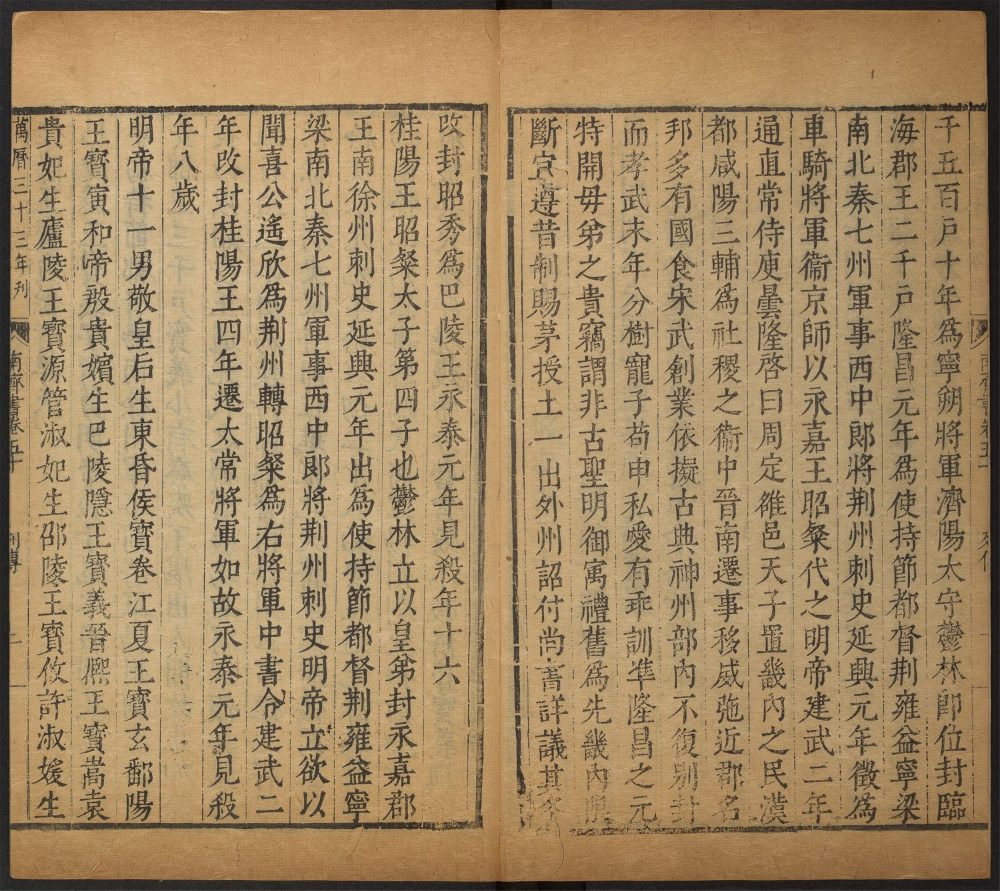 千五百戶十年爲寧朔將軍濟陽太守鬱林即位封臨
海郡王二千戶隆昌元年爲使持節都督荆雍益寧梁
南北秦七州軍事西中郎將荆州刺史延興元年徵爲
車騎將軍衞京師以永嘉王昭粲代之明帝建武二年
通直常侍庾曇隆啓曰周定雒邑天子置畿內之民漢
都咸陽三輔爲社稷之衞中晉南遷事移威弛近郡名
邦多有國食宋武創業依擬古典神州部內不復別封
而孝武末年分樹寵子苟申私愛有乖訓準隆昌之元
特開毋弟之貴竊謂非古聖明御寓禮舊爲先畿內
斷宜遵昔制賜茅授土一出外州詔付尚書詳議其
南齊書卷五十
改封昭秀爲巴陵王永泰元年見殺年十六
桂陽王昭粲太子第四子也鬱林立以皇弟封永嘉郡
王南徐州刺史延興元年出爲使持節都督荆雍益寧
梁南北秦七州軍事西中郎將荆州刺史明帝立欲以
聞喜公遙欣爲荆州轉昭粲爲右將軍中書令建武二
年改封桂陽王四年遷太常將軍如故永泰元年見殺
年八歲
明帝十一男敬皇后生東昏侯寶卷江夏王寶玄鄱陽
王寶寅和帝殷貴嬪生巴陵隱王寶義晉熙王寶嵩袁
貴妃生廬陵王寶源管淑妃生邵陵王寶攸許淑媛生
萬曆三十三年刊
南齊書卷五十 列傳 二